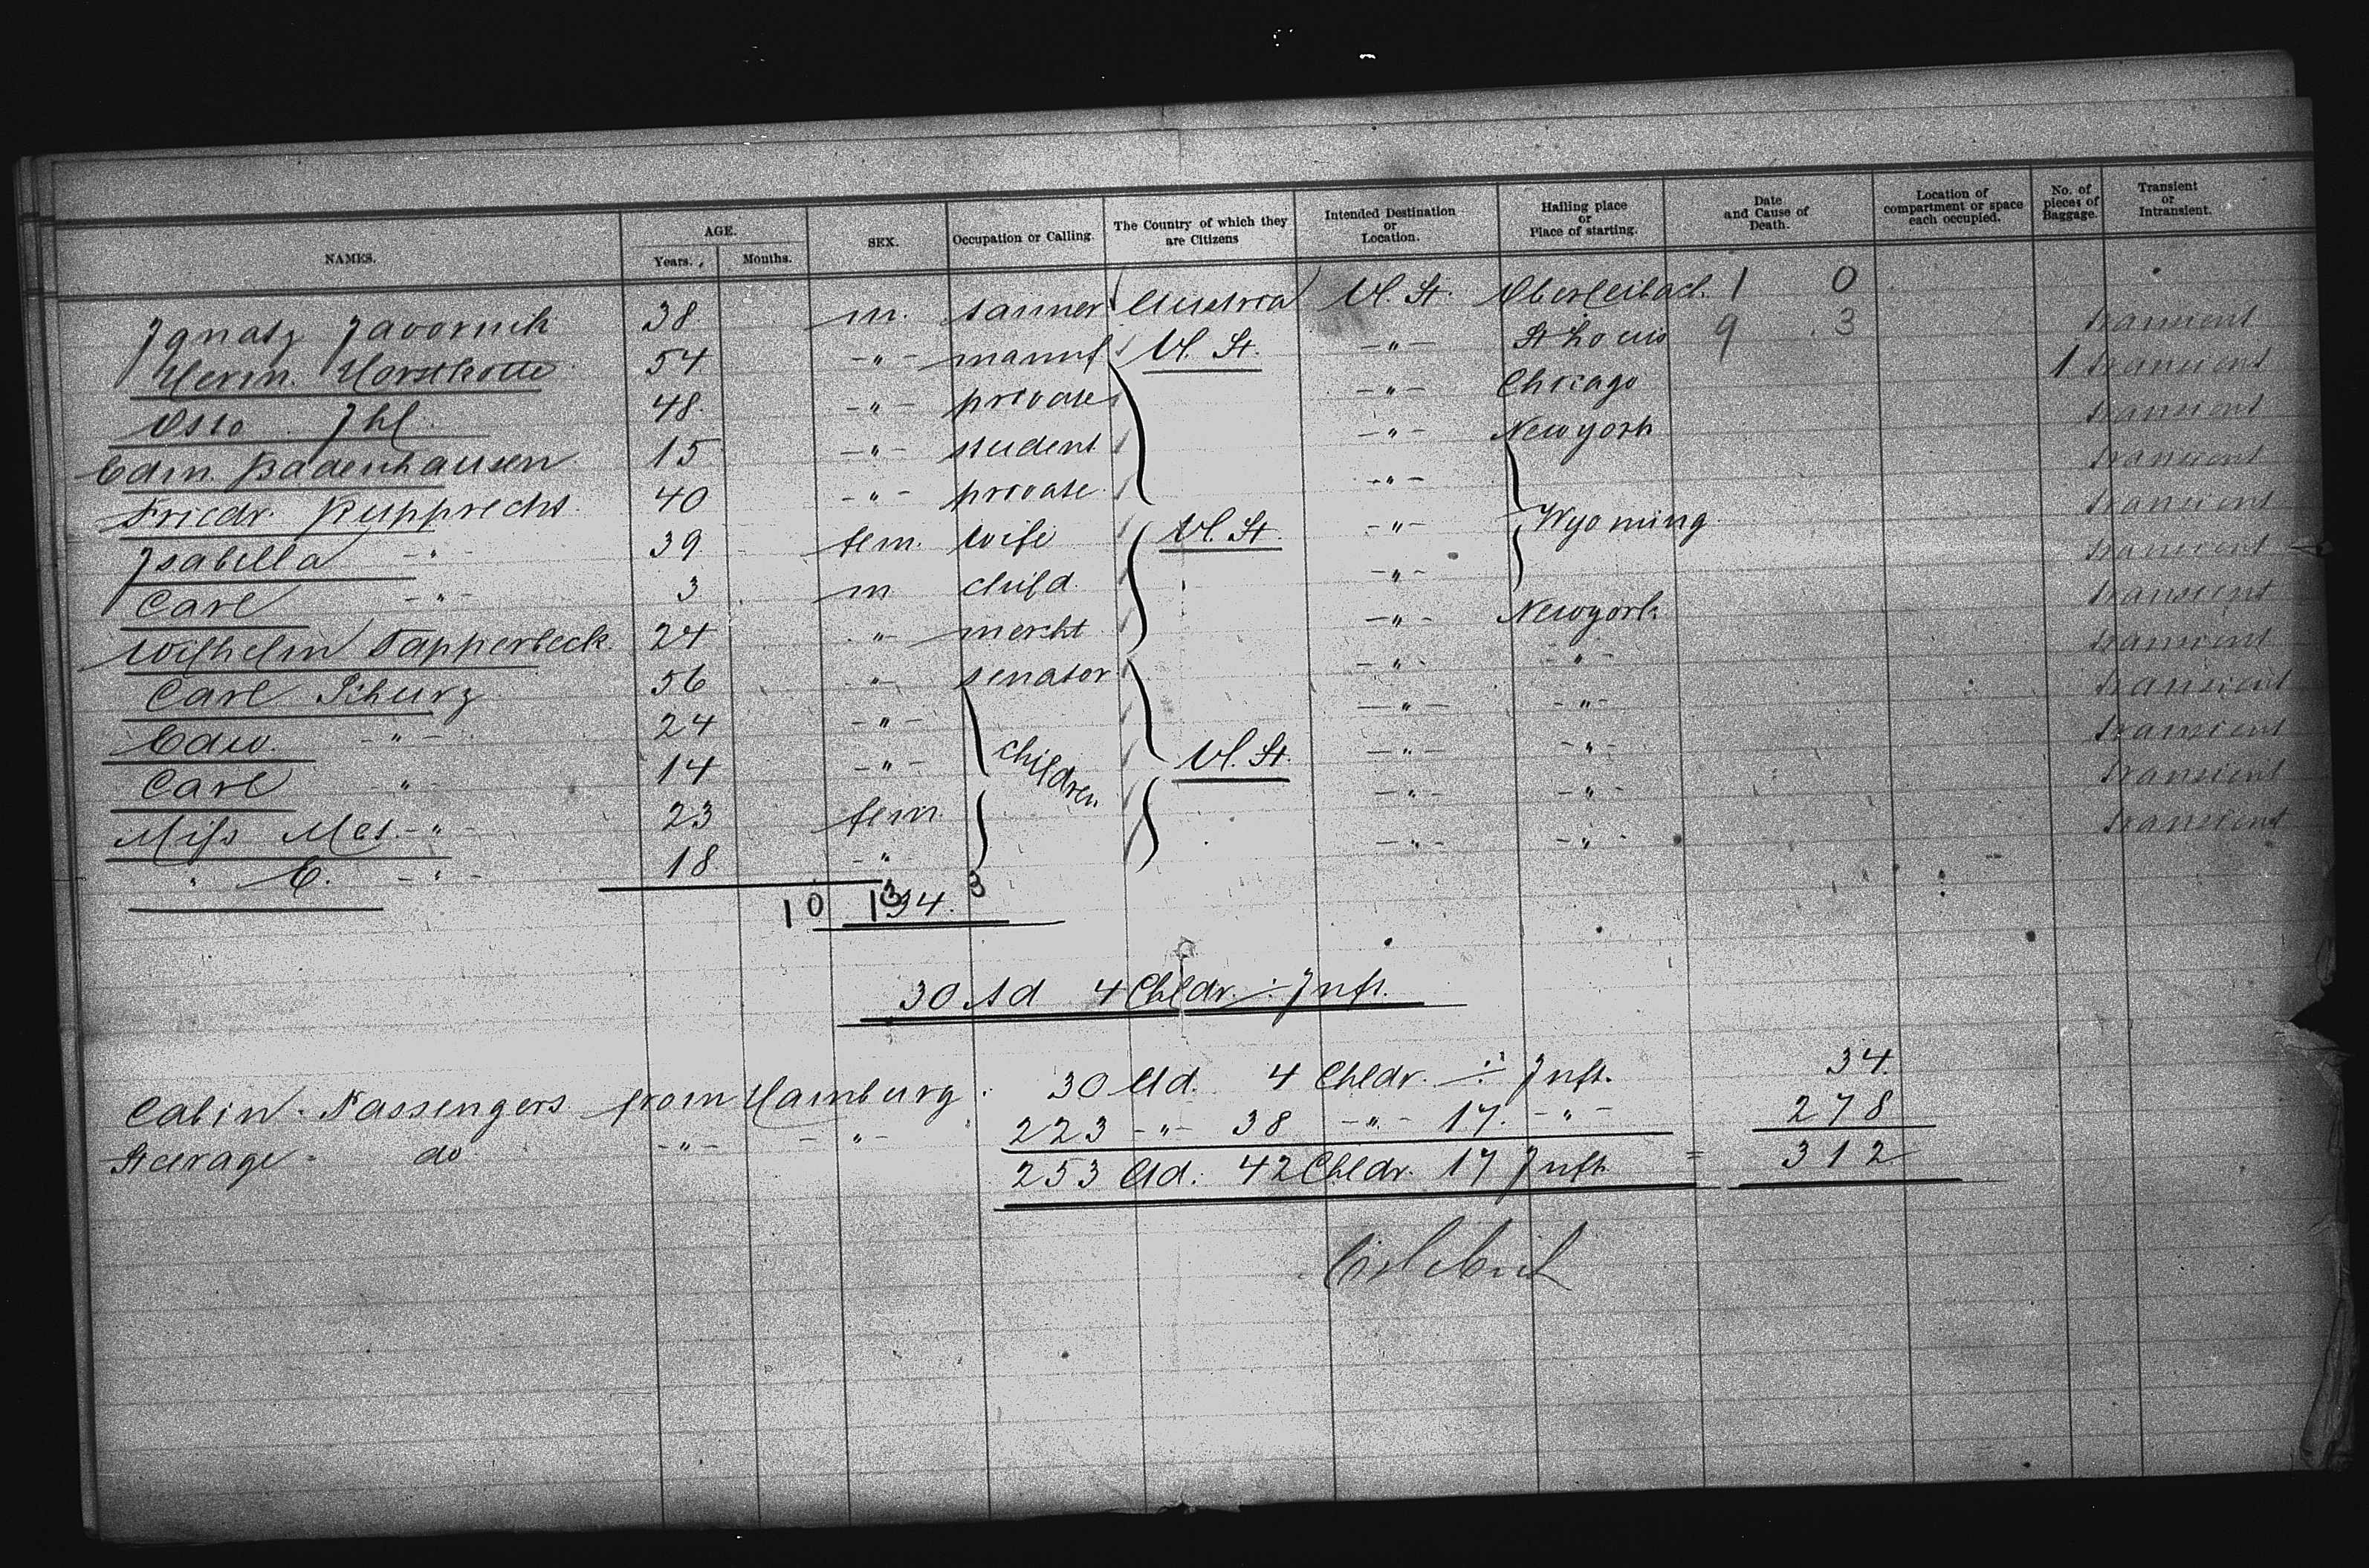 NAMES. AGE. Years. Months. SEX. Occupation or Calling. The Country of which they are Citizens Intended Destination or Location. Hailing place or Place of starting. Date and Cause of Death. Location of compartment or space each occupied. No. of pieces of Baggage. Transient or Intransient.
Ignatz Javornik 38 m. tanner Austria U. St. Oberleibach 1 0 transient
Herm. Horstkotte 54 -"- manuf U. St. -"- St Louis 9 3 1 transient
Otto Ihl 48 -"- private -"- Chicago transient
Edm. Badenhausen 15 -"- student -"- Newyork transient
Friedr. Rupprecht 40 -"- private -"- transient
Isabella -"- 39 fem. wife U. St. -"- Wyoming transient
Carl -"- 3 m child -"- transient
Wilhelm Tapperbeck 24 " mercht -"- Newyork transient
Carl Schurz 56 " senator -"- -"- transient
Edw. -"- 24 -"- children -"- -"- transient
Carl " 14 -"- U. St. -"- -"- transient
Miss Mat. -"- 23 fem. -"- -"- transient
" E. -"- 18 -"- -"- -"-
10 13 34. 3
30 Ad 4 Chldr. ÷ Inft.
Cabin-Passengers from Hamburg: 30 Ad. 4 Chldr. ÷ Inft. 34
Steerage- do -"- -"- 223 -"- 38 -"- 17. -"- 278
253 Ad. 42 Chldr. 17 Inft = 312